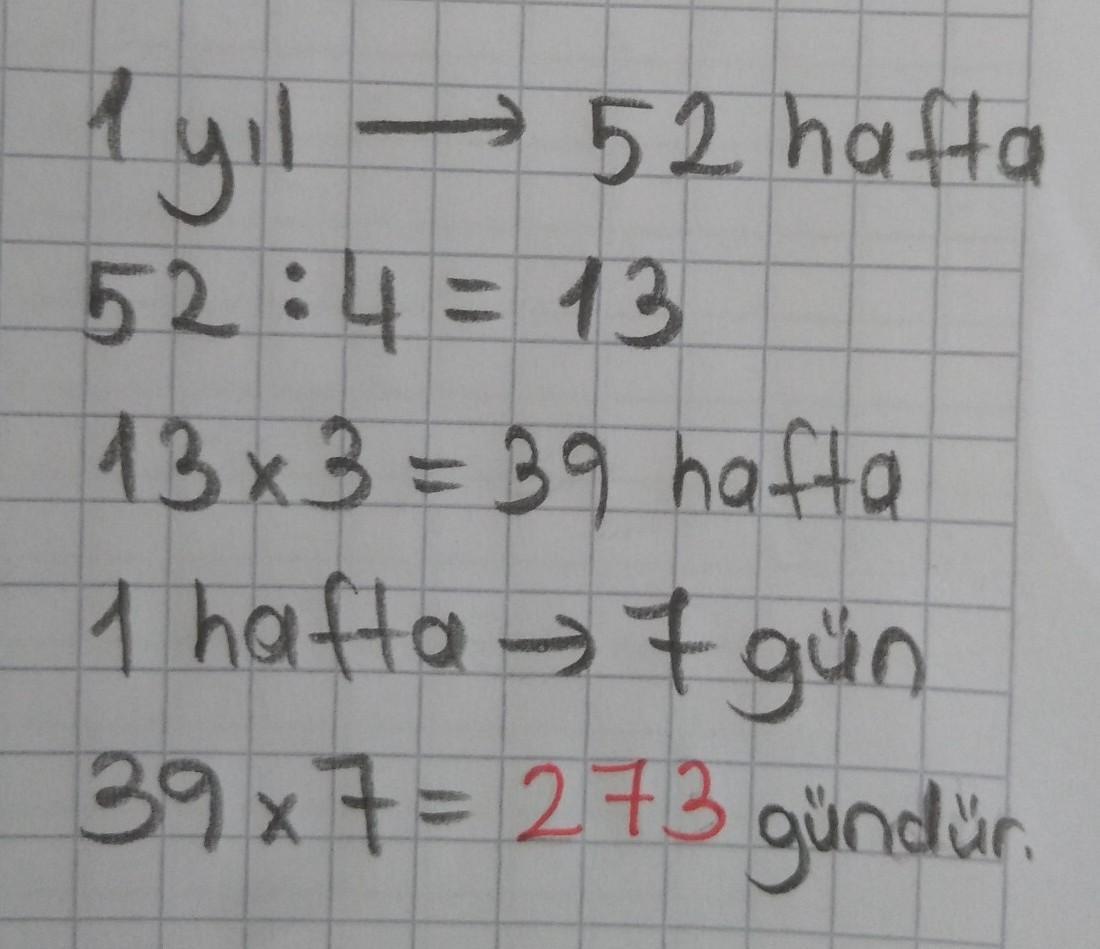 1 yıl → 52 hafta
52 : 4 = 13
13 x 3 = 39 hafta
1 hafta → 7 gün
39 x 7 = 273 gündür.